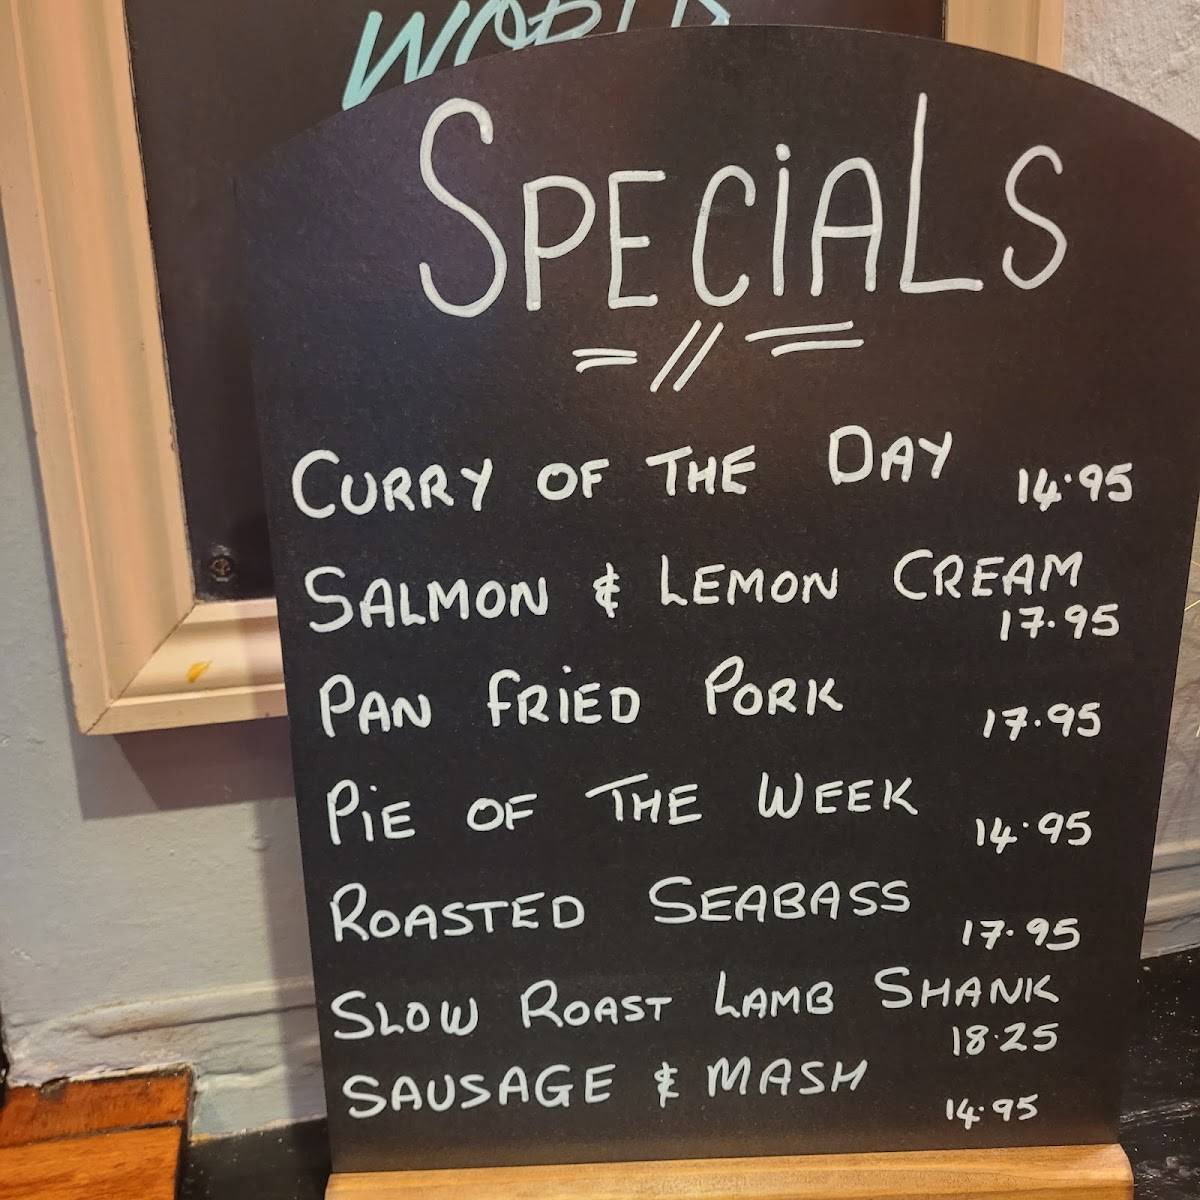 SPECiALS
CURRY OF THE DAY 14.95
SALMON & LEMON CREAM
17.95
PAN FRiED PORK 17.95
PiE OF THE WEEK 14.95
ROASTED SEABASS 17.95
SLOW ROAST LAMB SHANK
18.25
SAUSAGE & MASH 14.95